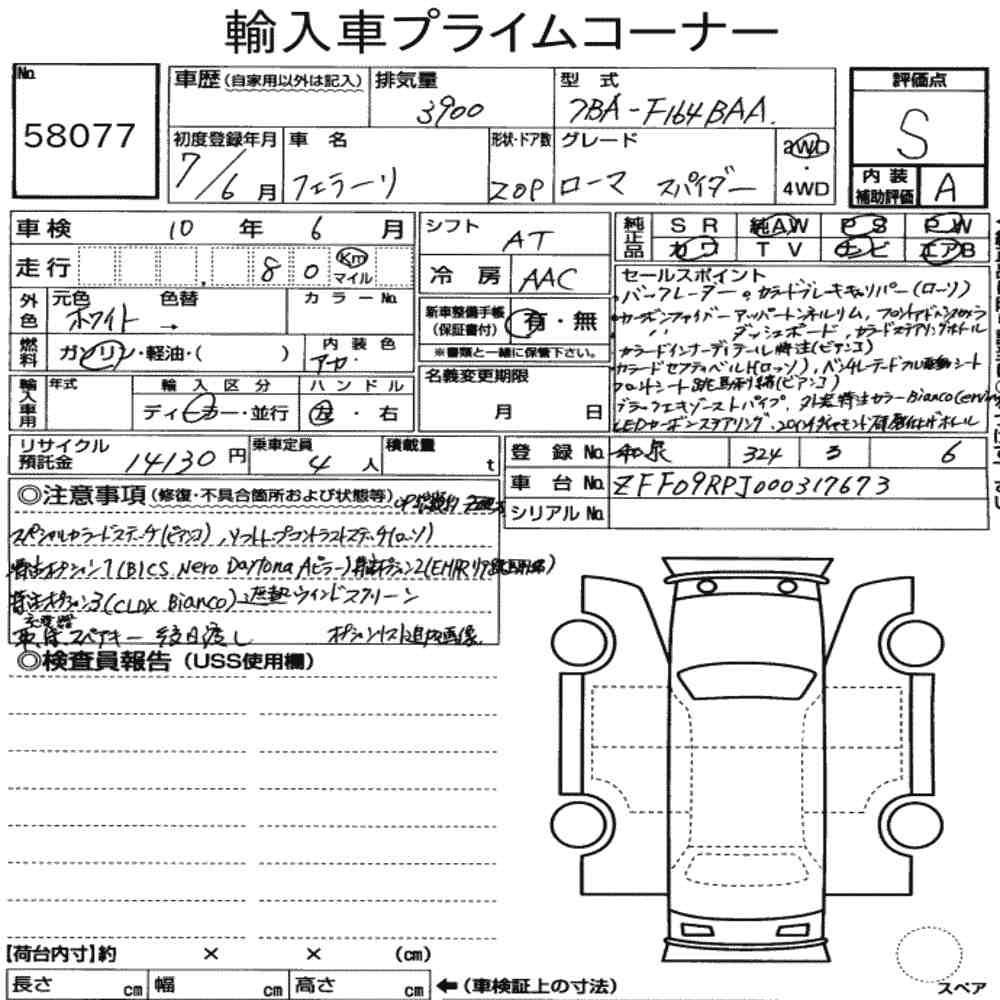 輸入車プライムコーナー
No. 58077
車歴(自家用以外は記入)
排気量 3900
型式 7BA-F164BAA.
評価点 S
内装補助評価 A
初度登録年月 7/6月
車名 フェラーリ
形状・ドア数 ZOP
グレード ローマ スパイダー
2WD・4WD
車検 10年 6月
走行 80 Km マイル
シフト AT
冷房 AAC
純正品 SR 純AW PS PW
カワ TV ナビ エアB
外色 元色 ホワイト 色替 → カラーNo.
燃料 ガソリン・軽油・( ) 内装色
新車整備手帳(保証書付) 有・無
※書類と一緒に保管下さい。
輸入車用 年式 輸入区分 ディーラー・並行 ハンドル 左・右
名義変更期限 月 日
セールスポイント
バーフレーダー。カラードブレーキキャリパー(ローソ)
カーボンファイバー アッパートンネルリム, フロントADASカメラ
〃 ダッシュボード, カラードステアリングホイール
カラードインナーディテール特注(ビアンコ)
カラードセフティベルト(ロッソ), ベンチレーテッドフル電動シート
フロントシート跳馬刺繍(ビアンコ)
ブラックエキゾーストパイプ, 外装特注カラーBianco
LEDカーボンステアリング, 20インチダイヤモンド研磨仕上げホイール
リサイクル預託金 14130円
乗車定員 4人
積載量 t
登録No. 和泉 324 る 6
車台No. ZFF09RPJ000317673
シリアルNo.
◎注意事項(修復・不具合箇所および状態等)
スペシャルカラードステッチ(ビアンコ), ソフトトップコントラストステッチ(ローソ)
特注オプション1(BICS Nero Daytona Aピラー)特注オプション2(EMHR リア跳馬刺繍)
特注オプション3(CLDX Bianco) 遮熱ウィンドスクリーン
充電器
車検 スペアキー 後日渡し オプションリスト追加画像.
◎検査員報告(USS使用欄)
【荷台内寸】約 × × (cm)
長さ cm 幅 cm 高さ cm ←(車検証上の寸法)
スペア